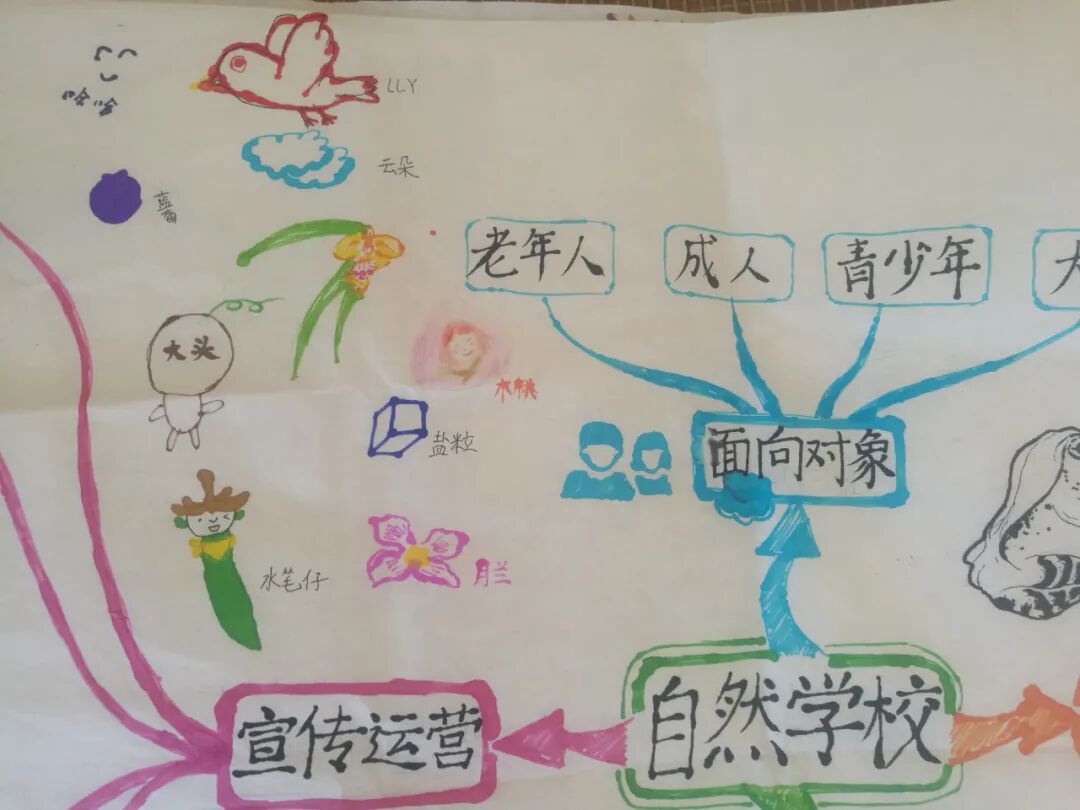 哈哈
LLY
云朵
蓝莓
老年人
成人
青少年
大头
木桃
盐粒
面向对象
水笔仔
月兰
宣传运营
自然学校